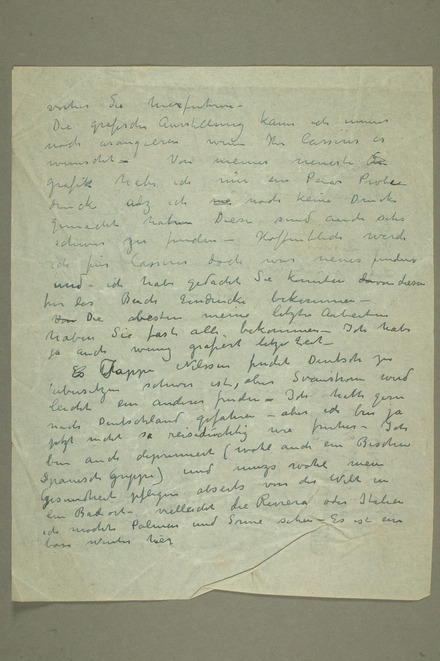 Sie hierfuhren –
Die grafische Ausstellung kann ich immer
noch arangieren wenn Herr Cassirer es
wunscht – Von meiner neueste
grafik habe ich nur ein Paar Probe
drucke als ich noch keine Drucke
gemacht haben Diese sind auch sehr
schwer zu finden – Hoffentlich werde
ich für Cassirer doch was neues finden
und – ich habe gedacht Sie konnten
für das Buch Eindrucke bekommen –
Die meine letzte Arbeiten
haben Sie fast alle bekommen – Ich habe
ja auch wenig grafiert letzte Zeit –
Jappe Nilssen findet Deutsch zu
ubersetzen schwer ist, aber Svenskern wird
leicht ein anderer finden – Ich hatte gern
nach Deutschland gefahren – aber ich bin ja
jetzt nicht so reisetuchtig wie fruher – Ich
bin auch deprimiert (wohl auch ein Bischen
Spanische Grippe) und muss wohl mein
Gesundheit pflegen abseits von der Welt in
ein Badeort – vielleicht die Riviera oder Italien
ich mochte Palmen und Sonne sehen – Es ist ein
Winter hier